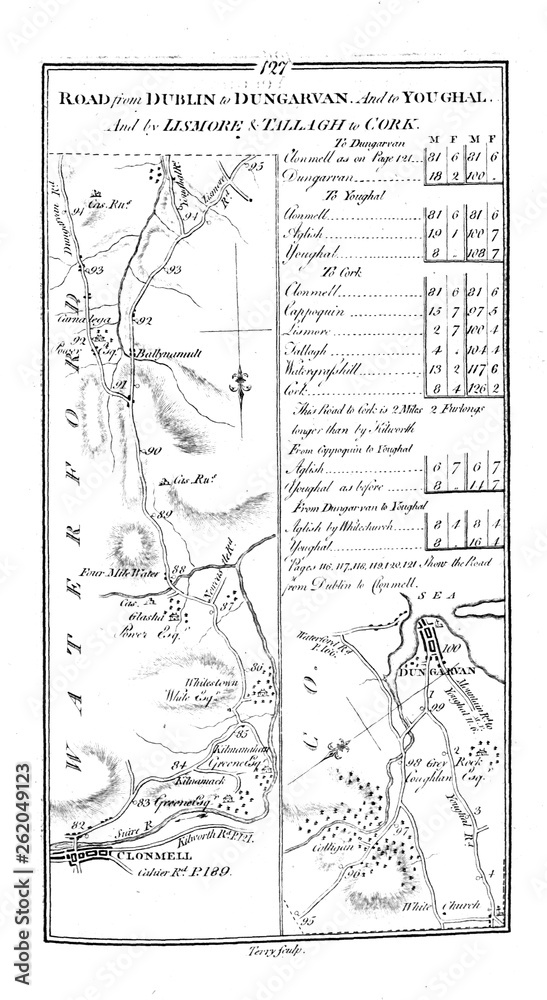 127
ROAD from DUBLIN to DUNGARVAN. And to YOUGHAL.
And by LISMORE & TALLAGH to CORK.
To Dungarvan M F M F
Clonmell as on Page 121 81 6 81 6
Dungarvan 18 2 100 .
To Youghal
Clonmell 81 6 81 6
Aglish 19 1 100 7
Youghal 8 . 108 7
To Cork
Clonmell 81 6 81 6
Cappoquin 15 7 97 5
Lismore 2 7 100 4
Tallagh 4 . 104 4
Watergrasshill 13 2 117 6
Cork 8 4 126 2
This Road to Cork is 2 Miles 2 Furlongs
longer than by Kilworth
From Cappoquin to Youghal
Aglish 6 7 6 7
Youghal as before 8 . 14 7
From Dungarvan to Youghal
Aglish by Whitechurch 8 4 8 4
Youghal 8 . 16 4
Pages 116, 117, 118, 119, 120, 121 Shew the Road
from Dublin to Clonmell.
95
Youghal Rd
Lismore Rd
Cas. Rus.
94
94
Dungarvan Rd
93
93
92
Carnalega
92
Power Esqr.
Ballynamult
91
90
Cas. Rus.
89
WATERFORD
Four Mile Water
88
Cas.
Glasha
Power Esqr.
87
Whitestown
White Esqr.
86
85
Kilmanahan
Greene Esqr.
84
Kilnamack
83
Greene Esqr.
82
Suire R.
Kilworth Rd. P. 121.
CLONMELL
Cahier Rd. P. 189.
SEA
Waterford Rd
P. 166.
100
DUNGARVAN
CO.
1
99
Mountain Rd to
Youghal
2
98
Grey Rock
Coughlan Esqr.
Youghal Rd.
3
97
Colligan
96
4
95
White Church
Terry Sculp.
Adobe Stock | #262049123
Adobe Stock